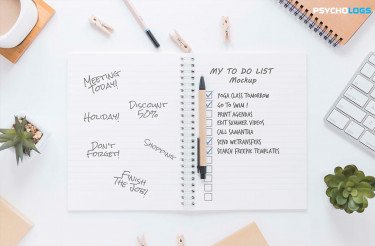 PSYCHOLOGS
MEETING
TODAY!
DISCOUNT
50%
HOLIDAY!
DON'T
FORGET!
SHOPPING
FINISH
THE JOB!
MY TO DO LIST
Mockup
YOGA CLASS TOMORROW
GO TO SWIM !
PRINT AGENDAS
EDIT SUMMER VIDEOS
CALL SAMANTHA
SEND WETRANSFERS
SEARCH FREEPIK TEMPLATES